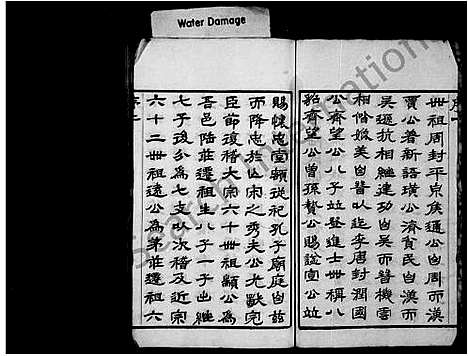 Water Damage
序一
世祖周封平京侯通公自周而漢
賈公著新語璜公濟貧民自漢而
吳遜抗相継建功自吳而晉機雲
相偕媲美自晉以迄李唐封潤國
公齊望公八子並登進士世稱八
齊望公曾孫贄公賜諡宣公並
賜懷忠堂額從祀孔子廟庭自茲
而降忠於宋之秀夫公尤
臣節復稽大宗六十世祖顓公為
吾邑陸莊遷祖生八子一子出継
七子後分為七支以次稽及近宗
六十二世祖遠公為弟莊遷祖六
序二